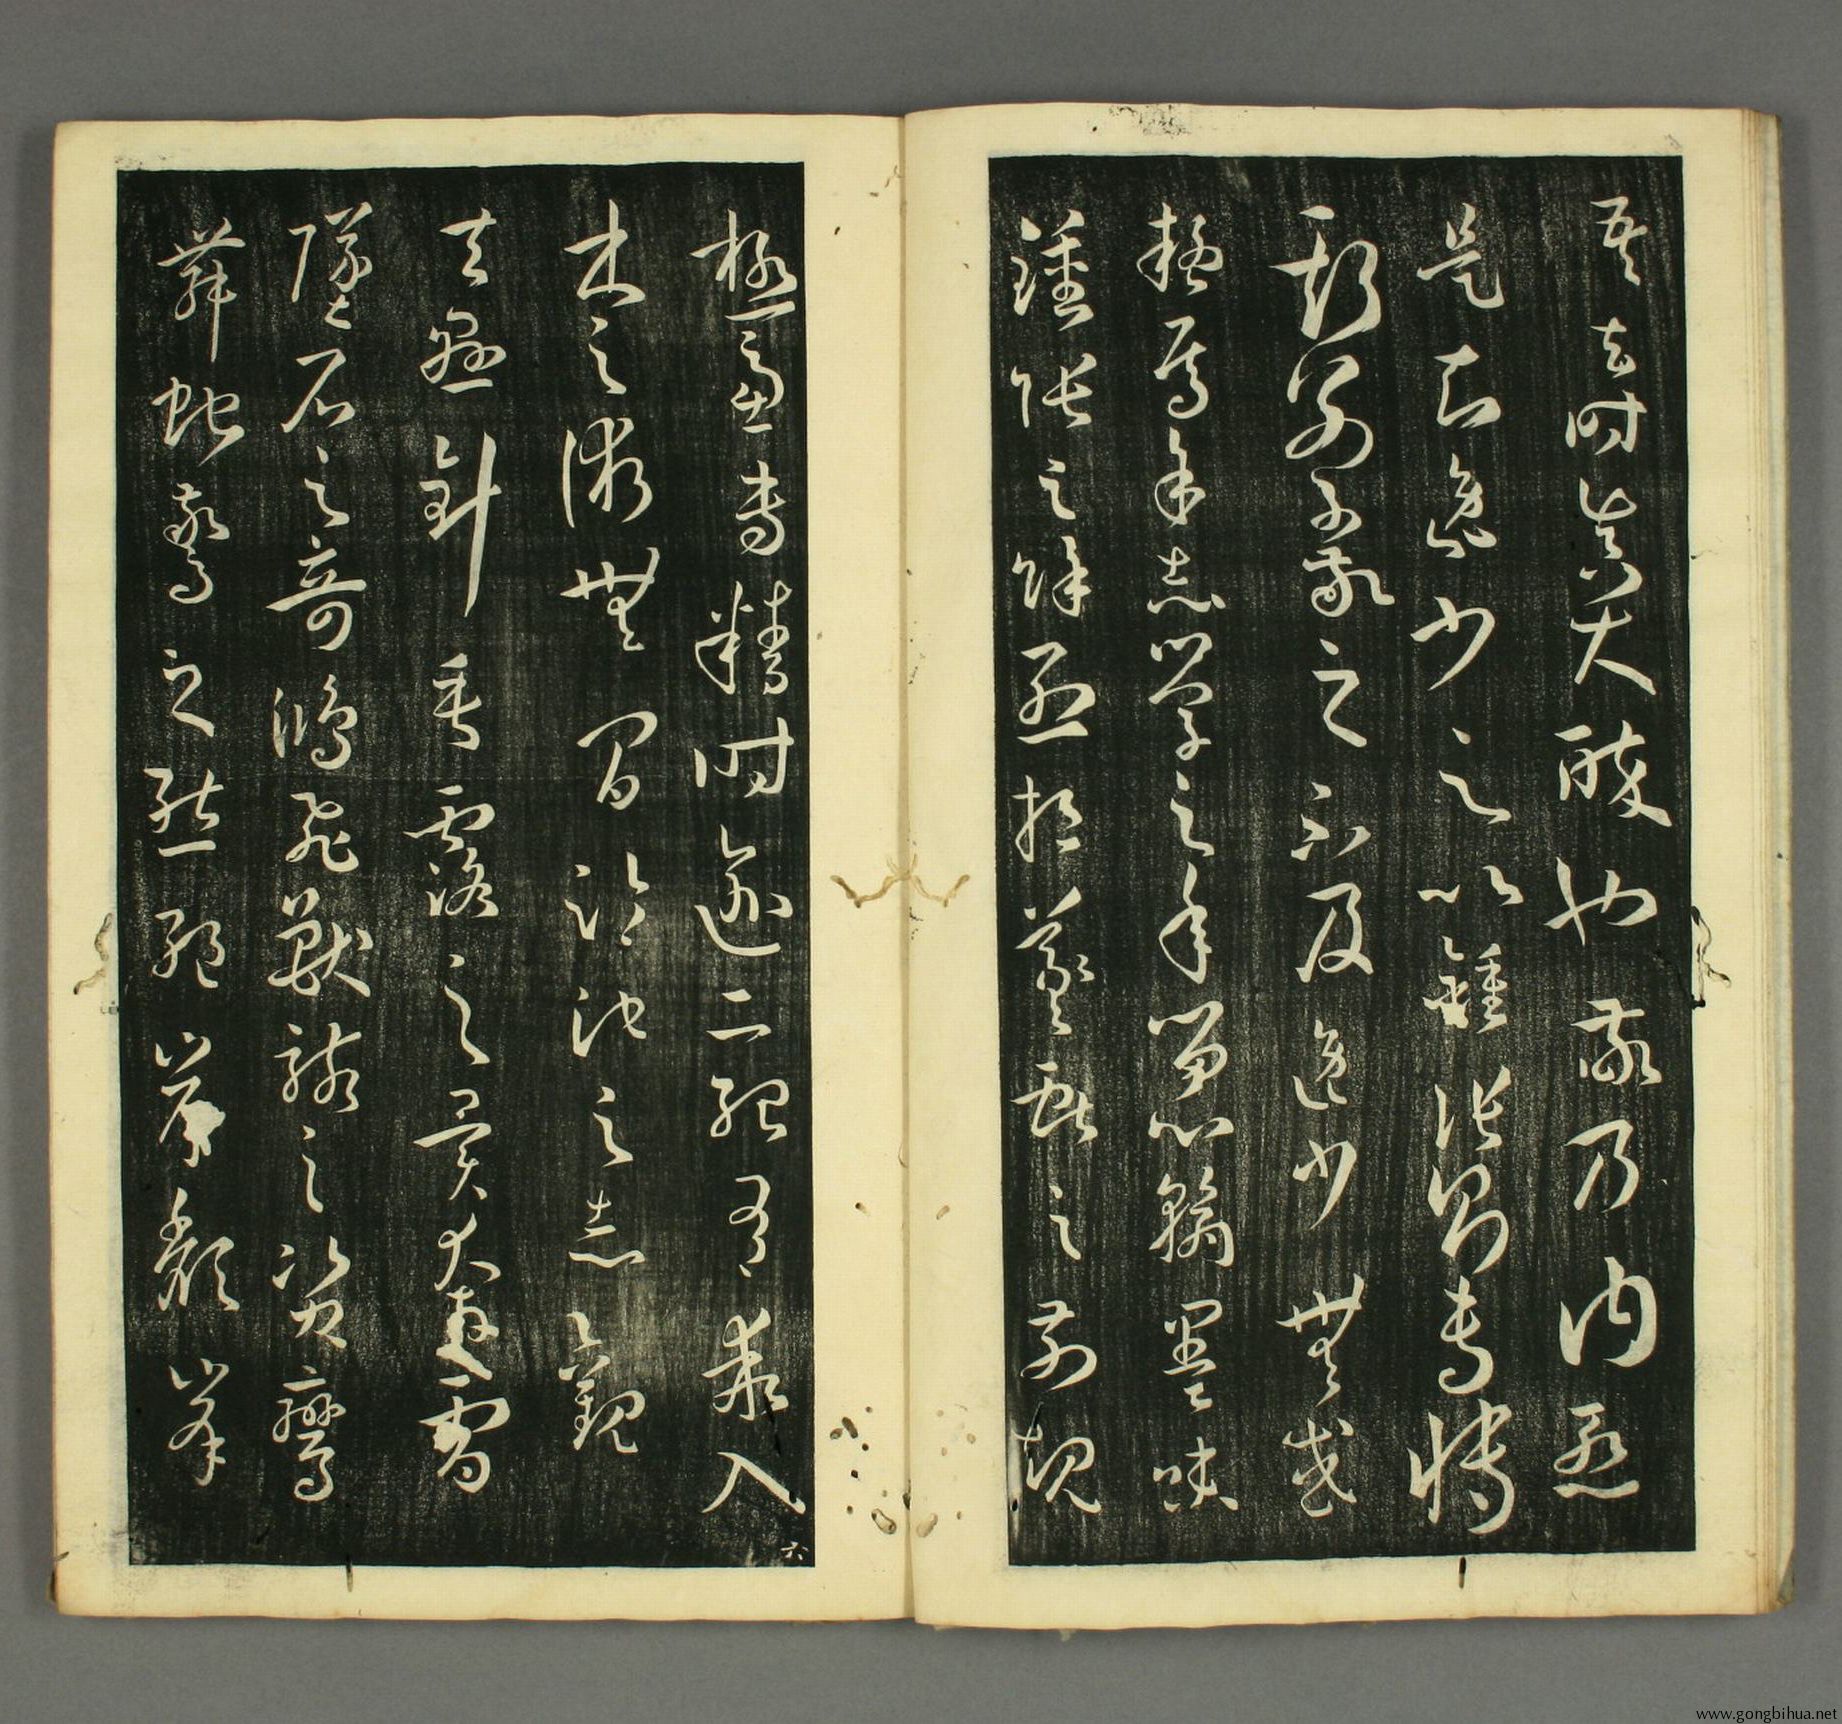 吾去時真大醉也敬乃内慙
是知逸少之比鍾張則專博
斯別子敬之不及逸少無或
疑焉余志學之年留心翰墨味
鍾張之餘烈挹羲獻之前規
極慮專精時逾二紀有乖入
六
木之術無間臨池之志觀
夫懸針垂露之異奔雷
墜石之奇鴻飛獸駭之資鸞
舞蛇驚之態絕岸頹峯
www.gongbihua.net